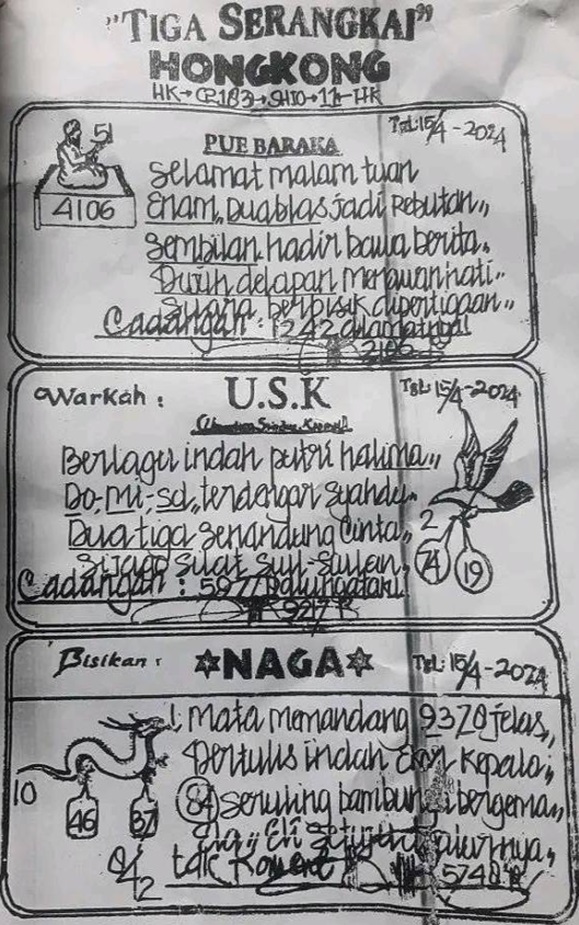 "TIGA SERANGKAI"
HONGKONG
HK→CR183→SHIO→11→HK
Tgl:15/4-2024
PUE BARAKA
51
4106
Selamat malam tuan
Enam, Duablas jadi Rebutan,,
Sembilan hadir bawa berita.
Tujuh delapan menawan hati..
Suara berbisik dipertigaan,,
Cadangan : 1242
2106
Warkah :
U.S.K
Tgl: 15/4-2024
Berlagu indah putri halima,,
Do, Mi, sol, terdengar syahdu.
Dua tiga senandung Cinta,,
Si jago silat
Cadangan : 5977
9217
2
74
19
Bisikan :
NAGA
Tgl: 15/4-2024
Mata memandang 9370 jelas,,
Tertulis indah Ekor Kepala,
84 seruling bambu bergema,,
Eli
10
46
37
8/42
tdk
5748